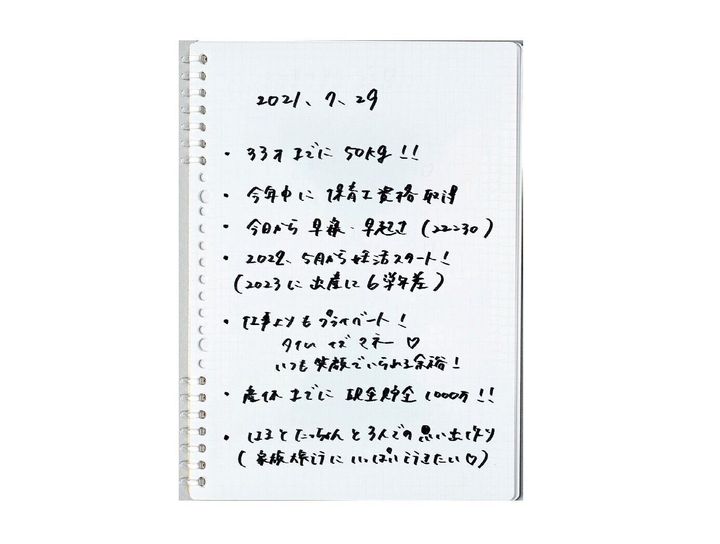 2021、7、29
・33才までに 50kg!!
・今年中に 保育士資格取得
・今日から 早寝・早起き (22:30)
・2022、5月から妊活スタート!
(2023に出産に6学年差)
・仕事よりもプライベート!
タイム イズ マネー♡
いつも笑顔でいられる余裕!
・産休までに 現金貯金 1000万!!
・はると たっちゃんと3人での思い出作り
(家族旅行に いっぱい行きたい♡)